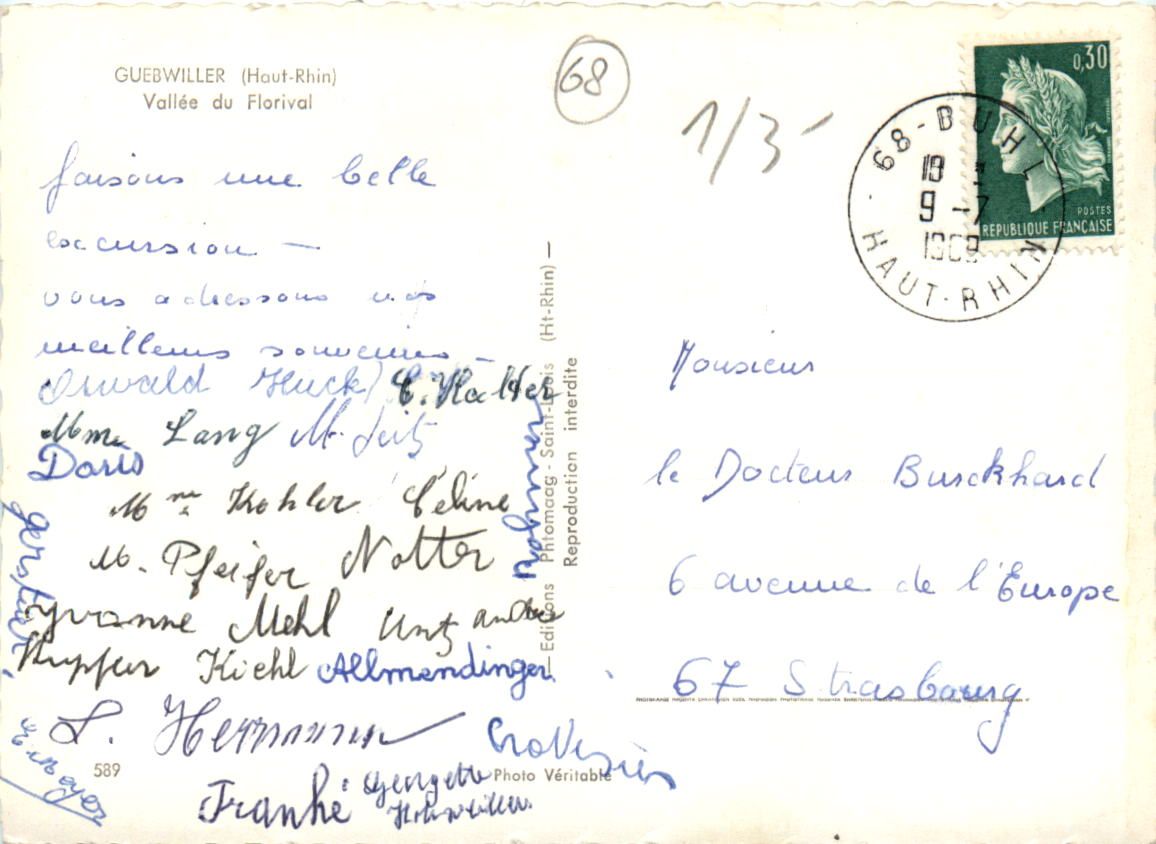 GUEBWILLER (Haut-Rhin)
Vallée du Florival
68
1/3
0,30
POSTES
REPUBLIQUE FRANÇAISE
68-BUHL
18
9-7
1969
HAUT-RHIN
faisons une belle
excursion —
vous adressons nos
meilleurs souvenirs —
Oswald Huck
Mme Lang M.
Doris
Mme Kohler Céline
M. Pfeifer Notter
Yvonne Mehl Untz andrée
Kupfer Kiehl Allmendinger
L. Hermann
Franhé Georgette
589
Photo Véritable
— Editions Phtomaag - Saint-Louis (Ht-Rhin) —
Reproduction interdite
Monsieur
le Docteur Burckhard
6 avenue de l'Europe
67 Strasbourg